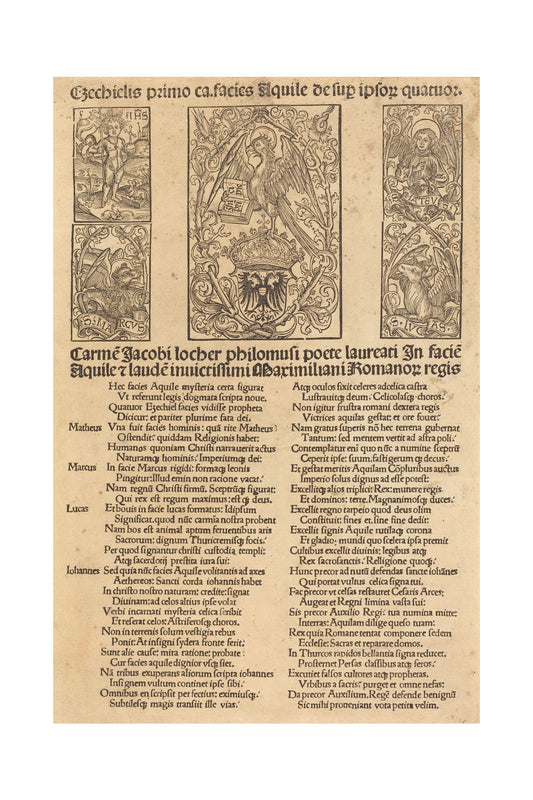 Ezechielis primo ca. facies Aquile desup ipsoꝝ quatuor.
IHS
S · MARCVS
S · LVCAS
Carmē Jacobi locher philomusi poete laureati In faciē
Aquile ⁊ laudē inuictissimi Maximiliani Romanoꝝ regis
Hec facies Aquile mysteria certa figurat
Vt referunt legis dogmata scripta noue.
Quatuor Ezechiel facies vidisse propheta
Dicitur: et pariter plurime fata dei.
Matheus Vna fuit facies hominis: quā rite Matheus
Ostendit: quiddam Religionis habet:
Humanos quoniam Christi narrauerit actus
Naturamqȝ hominis: Imperiumqȝ dei:
Marcus In facie Marcus rigidi: formaqȝ leonis
Pingitur: Illud emin non ratione vacat.
Nam regnū Christi firmū. Sceptrūqȝ figurat:
Qui rex est regum maximus: estqȝ deus.
Lucas Et bouis in facie lucas formatus: Idipsum
Significat. quod nūc carmia nostra probent
Nam bos est animal aptum feruentibus aris
Sacrorum: dignum Thuricremisqȝ focis.
Per quod signantur christi custodia templi:
Atqȝ sacerdotij prestita iura sui:
Iohannes Sed quia nūc facies Aquile volitantis ad axes
Aethereos: Sancti corda iohannis habet
In christo nostro naturam: credite: signat
Diuinam: ad celos altius ipse volat
Verbi incarnati mysteria celica scribit
Et reserat celos: Astriferosqȝ choros.
Non in terrenis solum vestigia rebus
Ponit: At insigni sydera fronte ferit:
Sunt alie cause: mira ratione: probate:
Cur facies aquile dignior vsqȝ siet.
Nā tribus exuperans aliorum scripta iohannes
Insignem vultum continet ipse sibi.
Omnibus en scripsit perfectius: eximiusqȝ:
Subtilesqȝ magis transiit ille vias.
Atqȝ oculos fixit celeres ad celica castra
Lustrauitqȝ deum: Celicolasqȝ choros.
Non igitur frustra romani dextera regis
Victrices aquilas gestat: et ore fouet:
Nam gratus superis nō hec terrena gubernat
Tantum: sed mentem vertit ad astra poli:
Contemplatur eni quo nūc a numine sceptrū
Ceperit ipse: suum. fasti gerum qȝ decus.
Et gestat meritis Aquilam Cōpluribus auctus
Imperio solus dignus ad esse potest:
Excellitqȝ alios triplici: Rex: munere regis
Et dominos: terre. Magnanimosqȝ duces.
Excellit regno tarpeio quod deus olim
Constituit: fines et. sine fine dedit:
Excellit signis Aquile rutilaqȝ corona
Et gladio: mundi quo scelera ipsa premit
Cultibus excellit diuinis: legibus atqȝ
Rex sacrosanctis. Relligione quoqȝ.
Hunc precor ad nutū defendas sancte iohānes
Qui portat vultus celica signa tui.
Fac precor vt celsas restauret Cesaris Arces:
Augeat et Regni limina vasta sui:
Sis precor Auxilio Regi: tua numina mitte:
In terras: Aquilam dilige queso tuam:
Rex quia Romane tentat componere sedem
Ecclesie: Sacras et reparare domos.
In Thurcos rapidos bellantia signa reducet.
Prosternet Persas classibus atqȝ feros:
Excutiet falsos cultores atqȝ propheras.
Vrbibus a sacris: purget et omne nefas:
Da precor Auxilium. Regē defende benignū
Sic mihi proueniant vota petita velim.